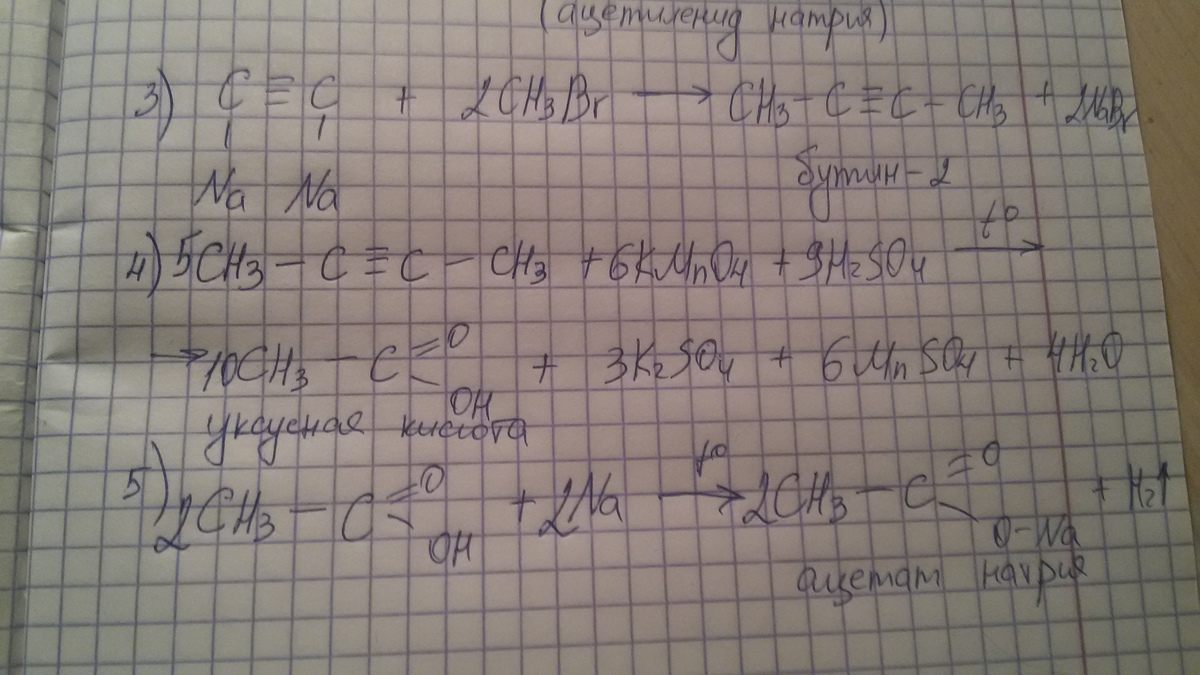 (ацетиленид натрия)
3) C ≡ C + 2CH₃Br → CH₃ – C ≡ C – CH₃ + 2NaBr
Na Na
бутин – 2
4) 5CH₃ – C ≡ C – CH₃ + 6KMnO₄ + 9H₂SO₄ t° →
→ 10CH₃ – C = O OH + 3K₂SO₄ + 6MnSO₄ + 4H₂O
уксусная кислота
5) 2CH₃ – C = O OH + 2Na t° → 2CH₃ – C = O O–Na + H₂↑
ацетат натрия